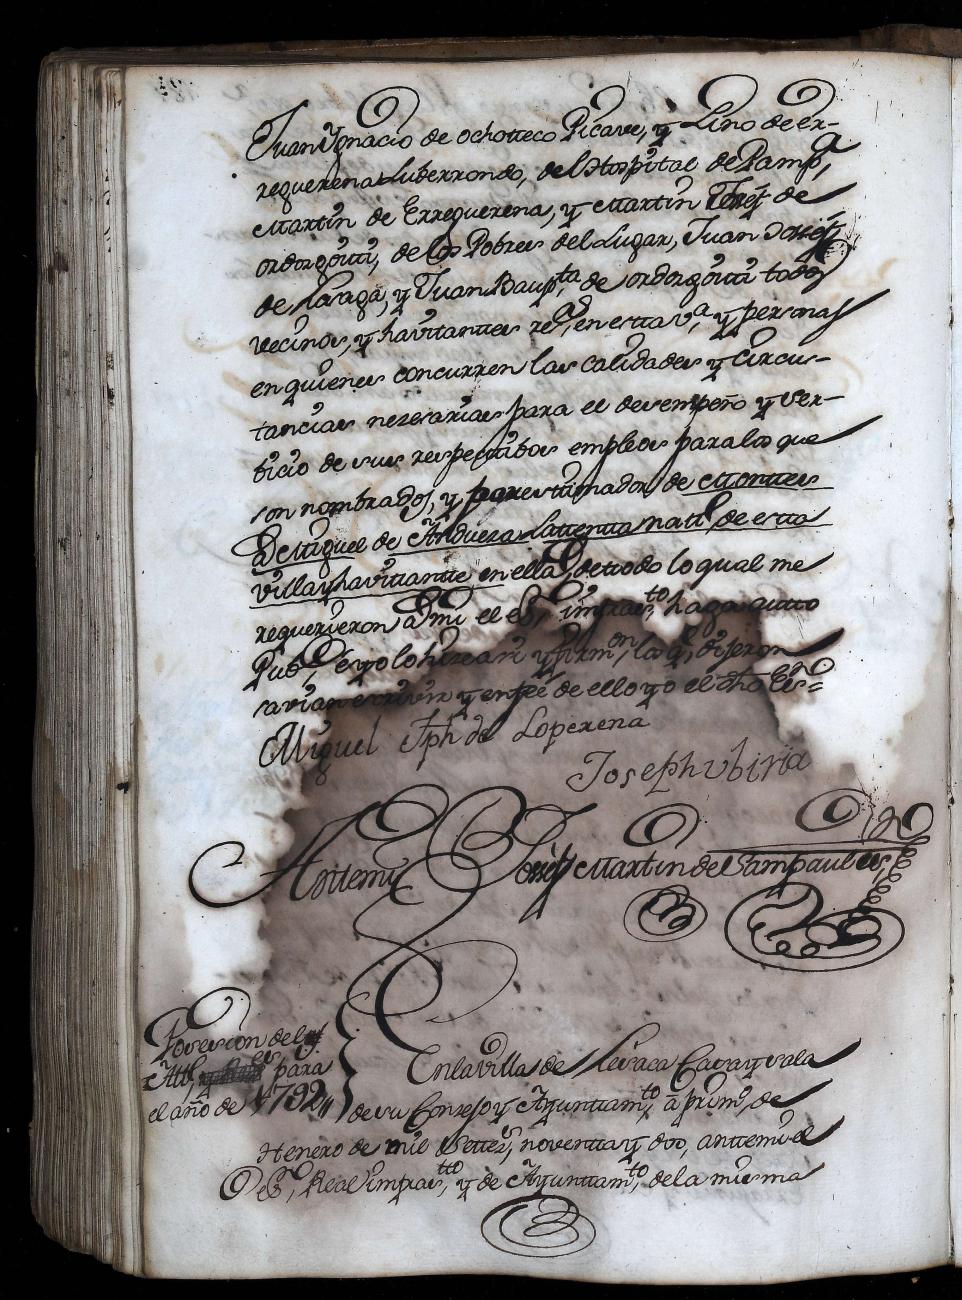 Juan Ygnacio de ochotteco Picave, y Lino de er-
requerena Luberrondo, del Hospital de Pampª,
Martin de Errequerena, y Martin Josef de
ordozgoitti, de los Pobres del Lugar, Juan Josef
de Laraga, y Juan Baupta de ordozgoitti todos
vecinos, y havitanttes en estta vª, y personas
en quienes concurren las calidades y Circus-
tancias nezesarias para el desempeño y ser-
bicio de sus respecttibos empleos para los que
son nombrados, y por esttimador de Monttes
a Miguel de Andueza Lattentta natl, de estta
villa y havitantte en ella, de ttodo lo qual me
requerieron a mi el esno, imfraetto, haga autto
Pubco, e yo lo hize asi y firmon, los q, dijeron
savian escrivir y en fee de ello yo el dho Esno=
Miguel Jph de Loperena
Joseph ubiria
Anttemi Josef Martin de Sampaul esno
Posesion del
Attl, para
el año de 1792,,
En la villa de Lesaca Casa y sala
de su Conzejo y Ayunttamtto, a primo, de
Henero de mil Settezs, noventta y dos, anttemi el
esno, Real imfraetto, y de Ayunttamtto, de la misma